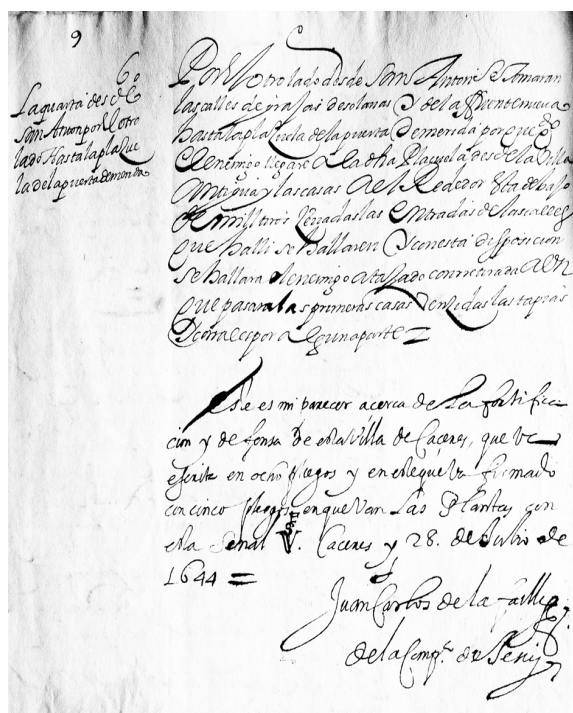 9
6º
La quarta desde
San Anton por el otro
lado Hasta la plaçue
la de la puerta de merida
Por el otro lado desde San Anton Se tomaran
las calles de orajas de solanas y de la fuente nueva
hasta la plaçuela de la puerta de merida porque
el enemigo llegare a la dha Plaçuela desde la Villa
Antigua y las casas de el Rededor
las entradas de las calles
que halli se hallaren y con esta disposicion
se hallara el enemigo atajado con retirada aun
que pasara las primeras casas Vencidas las tapias
y corrales por alguna parte =
Este es mi parecer acerca de la fortifica
cion y defensa de esta Villa de Caceres, que va
escrito en ocho pliegos y en este que va firmado
con cinco pliegos en que van Las Plantas con
esta Señal V. Caceres y 28. de Julio de
1644 =
Juan Carlos de la faille
de la Compª. de Jesus